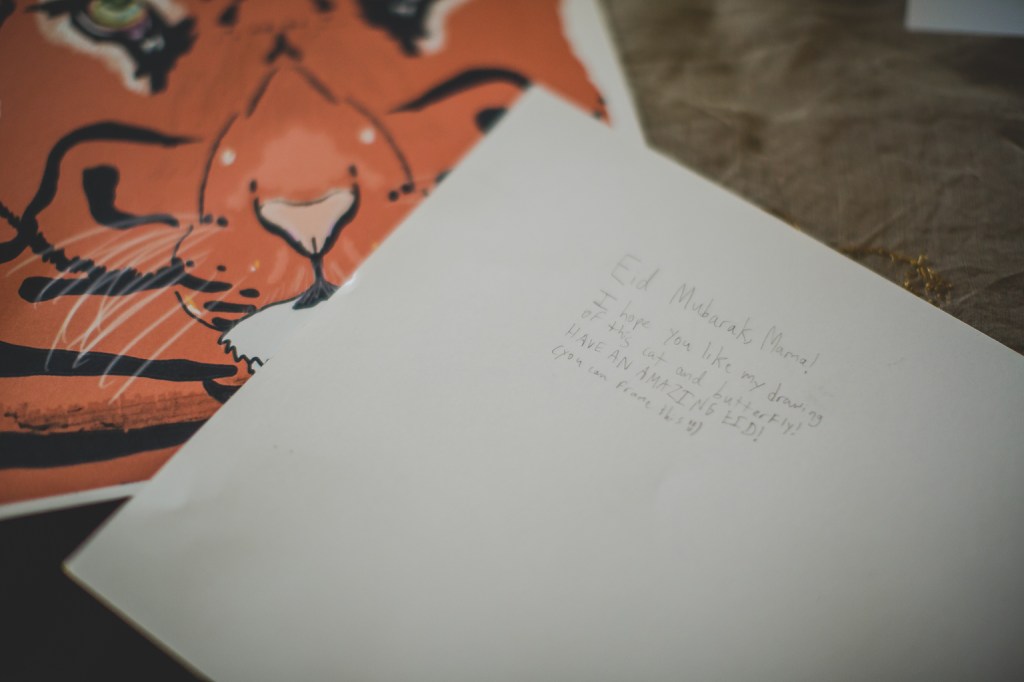 Eid Mubarak, Mama!
I hope you like my drawing
of this cat and butterfly!
HAVE AN AMAZING EID!
(you can frame this